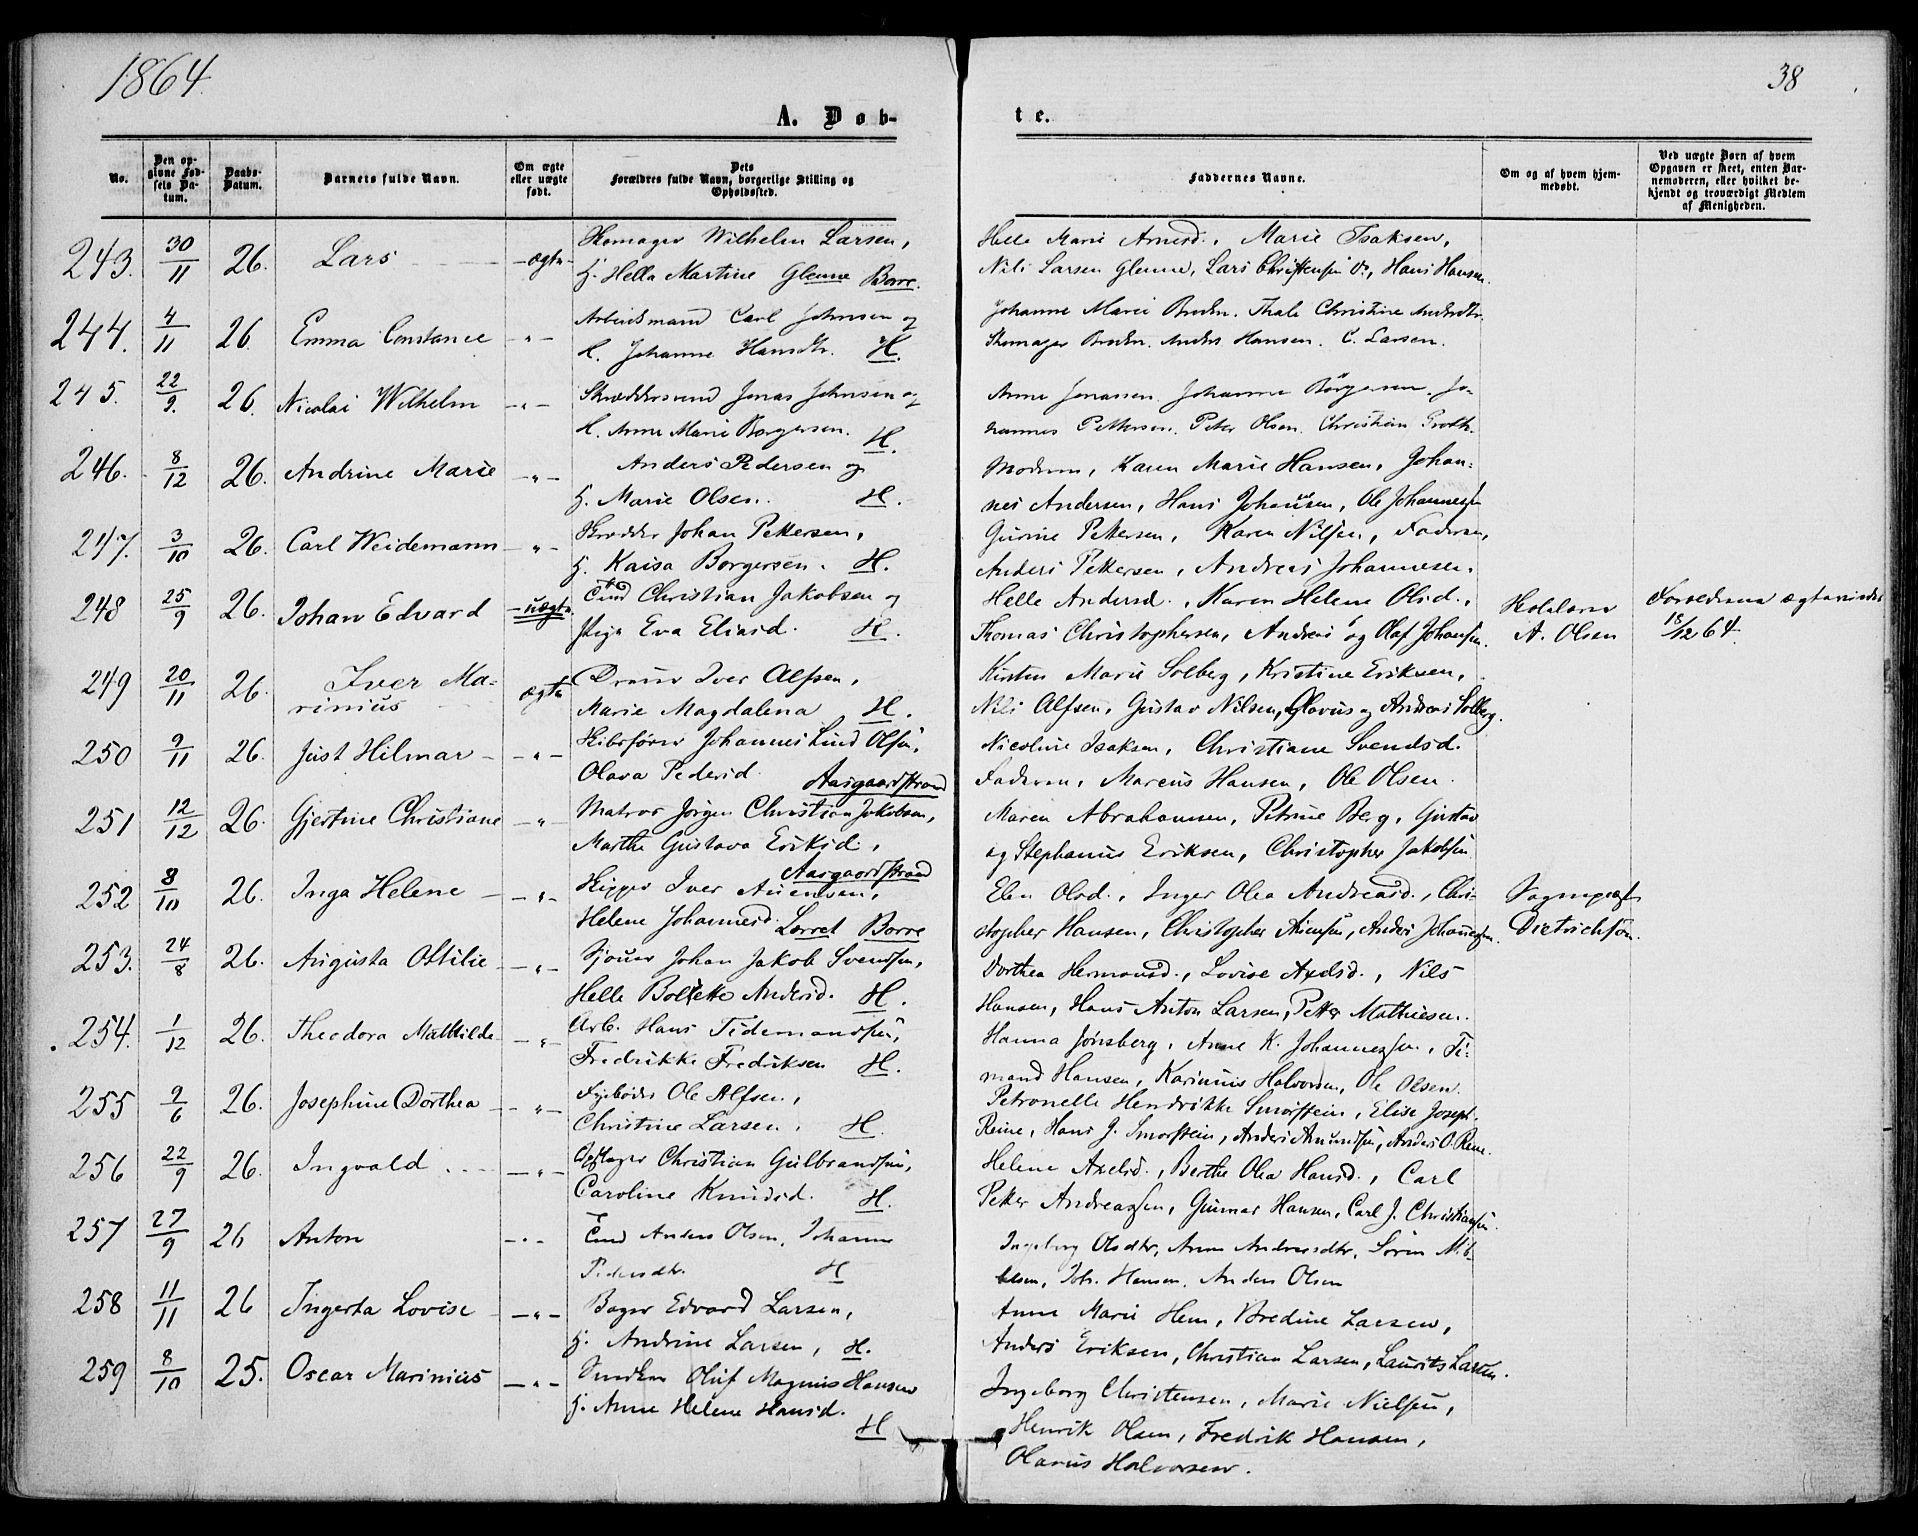 1864
38
A. Døb-
te.
No.
Den opgivne Fødsels Datum.
Daabs-Datum.
Barnets fulde Navn.
Om ægte eller uægte født.
Dets Forældres fulde Navn, borgerlige Stilling og Opholdssted.
Faddernes Navne.
Om og af hvem hjemmedøbt.
Ved uægte Børn af hvem Opgaven er skeet, enten Barnemoderen, eller hvilket bekjendt og troværdigt Medlem af Menigheden.
243. 30/11 26. Lars ægte Skomager Wilhelm Larsen, Helle Marie Arnesd., Marie Isaksen,
H. Hella Martine Glenne Borre. Nils Larsen Glenne, Lars Christensen do, Hans Hansen
244. 4/11 26. Emma Constance -"- Arbeidsmand Carl Johnsen og Johanne Marie Thale Christine Andersdtr.
H. Johanne Hansdtr. H. Skomager Anders Hansen. C. Larsen.
245. 22/9. 26. Nicolai Wilhelm -"- Skræddersvend Jonas Johnsen og Anne Jonassen. Johanne Börgersen. Jo-
H. Anne Marie Borgersen. H. hannes Pettersen. Peter Olsen. Christian
246. 8/12 26. Andrine Marie -"- Anders Pedersen og Moderen, Karen Marie Hansen, Johan-
H. Marie Olsen. H. nes Andersen, Hans Johansen, Ole Johannessen
247. 3/10 26. Carl Weidemann -"- Skrædder Johan Pettersen, Gurine Pettersen, Karen Nilsen, Faderen,
H. Kaisa Borgersen. H. Anders Pettersen, Andreas Johannesen.
248 25/9 26. Johan Edvard uægte Christian Jakobsen og Helle Andersd., Karen Helene Olsd.,
Pige Eva Eliasd. H. Thomas Christophersen, Andreas og Olaf Johansen. A. Olsen 12 64.
249 20/11 26. Iver Ma- ægte Iver Alfsen, Kirsten Marie Solberg, Kristine Eriksen,
rinius Marie Magdalena H. Nils Alfsen, Gustav Nilsen, Olavus og Andreas Solberg.
250 9/11 26. Just Hilmar -"- Skibsfører Johannes Lund Olsen, Nicoline Isaksen, Christiane Svendsd.
Olava Pedersd. Aasgaardstrand Faderen, Marcus Hansen, Ole Olsen.
251 12/12 26. Gjertine Christiane -"- Matros Jørgen Christian Jakobsen, Maren Abrahamsen, Petrine Berg, Gustav
Marthe Gustava Eriksd., Aasgaardstrand og Stephanus Eriksen, Christopher Jakobsen
252 8/10 26. Inga Helene -"- Skipper Iver Elen Olsd., Inger Olea Andreasd., Chri- Sogneprest
Helene Johannesd. Lørret Borre stopher Hansen, Christopher Anders Johannessen. Dietrichson.
253. 24/8 26. Augusta Ottilie -"- Sjouer Johan Jakob Svendsen, Dorthea Hermansd., Lovise Axelsd., Nils
Helle Bolette Andersd. H. Hansen, Hans Anton Larsen, Petter Mathiesen.
254. 1/12 26. Theodora Mathilde -"- Arb. Hans Tidemandsen, Hanna Jønsberg, Anne K. Johannessen, Ti-
Fredrikke Fredriksen H. mand Hansen, Karinius Halvorsen, Ole Olsen.
255 2/6 26. Josephine Dorthea -"- Ole Alfsen, Petronelle Hendrikke Smørstein, Elise Joseph.
Christine Larsen. H. Reine, Hans J. Smørstein, Anders Amundsen, Anders O. Reine.
256 22/9 26. Ingvald -"- Christian Gulbrandsen, Helene Axelsd., Berthe Olea Hansd., Carl
Caroline Knudsd. H. Petter Andreassen, Gunnar Hansen, Carl J. Christiansen.
257 27/9 26 Anton -"- Anders Olsen, Johanne Ingeborg Olsdtr, Anne Andreasdtr. Sören
Pedersdtr. H Joh. Hansen. Anders Olsen
258 11/11 26 Ingerta Lovise -"- Bager Edvard Larsen, Anne Marie Hem, Bredine Larsen,
H. Andrine Larsen, H. Anders Eriksen, Christian Larsen, Laurits Larsen.
259 8/10 25. Oscar Marinius -"- Oluf Magnus Hansen Ingeborg Christensen, Marie Nielsen,
H. Anne Helene Hansd. H Henrik Olsen, Fredrik Hansen,
Olavus Halvorsen.